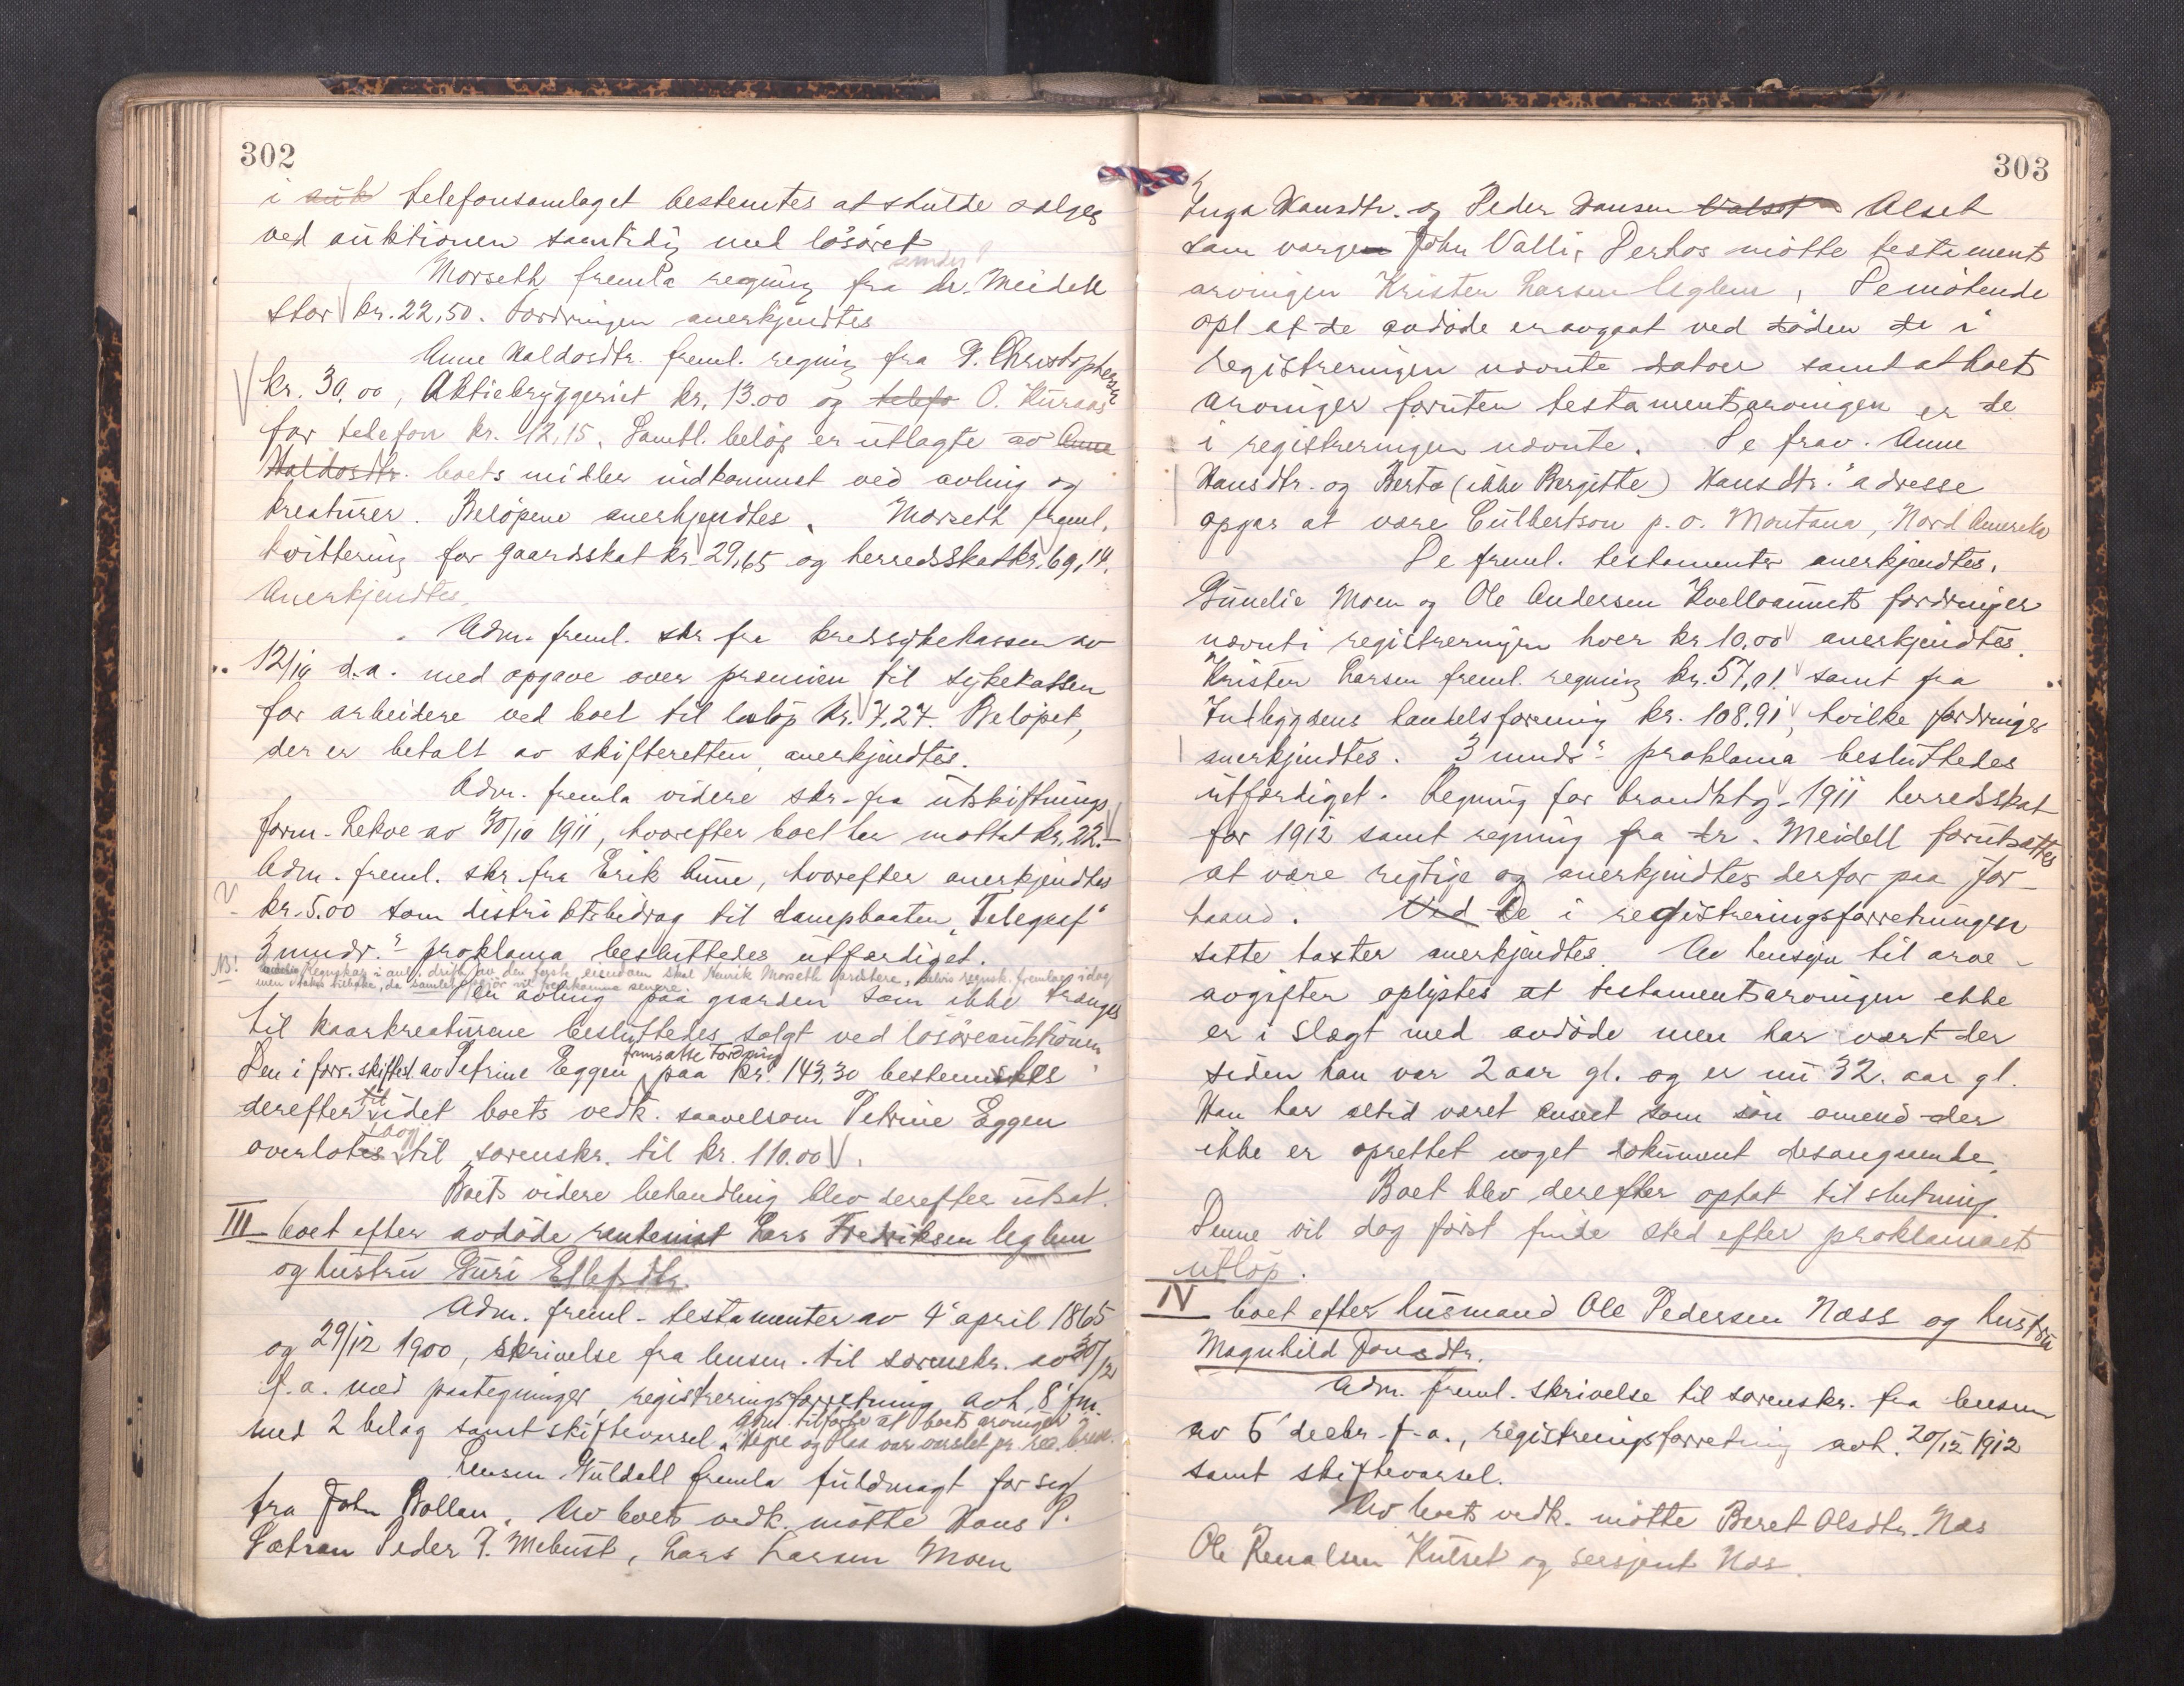 302
i auk telefonsamlaget bestemtes at skulde sælges
ved auktionen samtidig med løsøret
Morseth fremla regning fra dr. Meidell
stor kr. 22,50. Fordringen anerkjendtes
Anne Haldosdtr. freml. regning fra P. Christophersen
kr. 30,00, Aktiebryggeriet kr. 13.00 og telefo O. Kuraas
for telefon kr. 12,15. Samtl. beløp er utlagte av Anne
Haldosdtr. boets midler indkommet ved avling og
kreaturer. Beløpene anerkjendtes. Morseth freml.
kvittering for gaardsskat kr. 29,65 og herredsskat kr. 69,14.
Anerkjendtes.
Adm. freml. skr. fra kredssykekassen av
12/10 d.a. med opgave over præmien til sykekassen
for arbeidere ved boet til beløp kr. 7,27. Beløpet,
der er betalt av skifteretten, anerkjendtes.
Adm. fremla videre skr. fra utskiftnings
form. Rekve av 30/10 1911, hvorefter boet har mottat kr. 22.-
Adm. freml. skr. fra Erik Aune, hvorefter anerkjendtes
kr. 5.00 som distriktsbidrag til dampbaaten "Telegraf"
3 mndr.s proklama besluttedes utfærdiget.
NB! Regnskap i anl. drift av den faste eiendom skal Henrik Morseth fremlægge i dag
men trakk tilbake, da samlet opgjør vil fremkomme senere.
Den avling paa gaarden som ikke trænges
til kaarkreaturene besluttedes solgt ved løsøreauktionen
Den i forr. skiftesl. av Petrine Eggen fremsatte fordring paa kr. 143,30 bestemtes
derefter til idet boets vedk. saavelsom Petrine Eggen
overlotes dog til sorenskr. til kr. 110.00.
Boets videre behandling blev derefter utsat.
III boet efter avdøde rentenist Lars Fredriksen Uglem
og hustru Guri Ellefsdtr.
Adm. freml. testamenter av 4' april 1865
og 29/12 1900, skrivelse fra lensm. til sorenskr. av 30/12
f.a. med paategninger, registreringsforretning avh. 8' fm.
med 2 bilag samt skiftevarsel. Adm. tilføide at boets arvinger
var varslet pr. rec. brev.
Lensm. Guldall fremla fuldmagt for sig
fra John Bollan. Av boets vedk. møtte Hans P.
Sætran Peder J. Mebust, Lars Larsen Moen
303
Inga Hansdtr. og Peder Hansen Valset Alset
som værge John Valli. Derhos møtte testaments
arvingen Krister Larsen Uglem. De møtende
opl. at de avdøde er avgaat ved døden de i
registreringen nævnte datoer samt at boets
arvinger foruten testamentsarvingen er de
i registreringen nævnte. De frav. Anne
Hansdtr. og Berta (ikke Bergitte) Hansdtr.s adresse
opgas at være Culbertson p.o. Montana, Nord Amerika
De freml. testamenter anerkjendtes.
Gunelie Moen og Ole Andersen Kvelloaunets fordringer
nævnt i registreringen hver kr. 10.00 anerkjendtes.
Krister Larsen freml. regning kr. 57,01 samt fra
Indbygdens handelsforening kr. 108,91, hvilke fordringer
anerkjendtes. 3 mndr.s proklama besluttedes
utfærdiget. Regning for brandktg. 1911 herredsskat
for 1912 samt regning fra dr. Meidell forutsættes
at være rigtige og anerkjendtes derfor paa for-
haand. Ved De i registreringsforretningen
satte taxter anerkjendtes. Av hensyn til arve-
avgiften oplystes at testamentsarvingen ikke
er i slægt med avdøde men har vært der
siden han var 2 aar gl. og er nu 32 aar gl.
Han har altid været anseet som søn omend der
ikke er oprettet noget dokument desangaaende.
Boet blev derefter optat til slutning.
Denne vil dog først finde sted efter proklamaets
utløp.
IV boet efter husmand Ole Pedersen Næss og hustru
Magnhild Jonsdtr.
Adm. freml. skrivelse til sorenskr. fra lensm
av 5' decbr. f.a., registreringsforretning avh. 20/12 1912
samt skiftevarsel.
Av boets vedk. møtte Beret Olsdtr. Næs
Ole Renalsen Kulset og sersjent Næs.